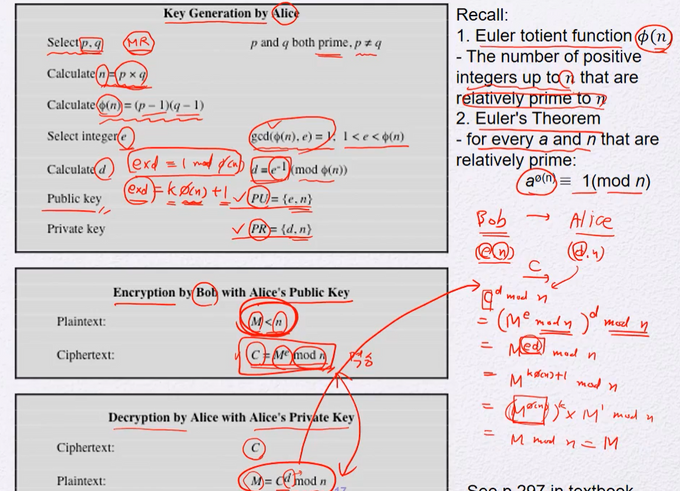 Key Generation by Alice
Select p, q MR p and q both prime, p ≠ q
Calculate n = p × q
Calculate ϕ(n) = (p − 1)(q − 1)
Select integer e gcd(ϕ(n), e) = 1; 1 < e < ϕ(n)
Calculate d (exd ≡ 1 mod ϕ(n)) d ≡ e⁻¹ (mod ϕ(n))
(exd) = kϕ(n) + 1
Public key PU = {e, n}
Private key PR = {d, n}
Encryption by Bob with Alice's Public Key
Plaintext: M < n
Ciphertext: C = Mᵉ mod n
Decryption by Alice with Alice's Private Key
Ciphertext: C
Plaintext: M = Cᵈ mod n
Recall:
1. Euler totient function ϕ(n)
- The number of positive
integers up to n that are
relatively prime to n
2. Euler's Theorem
- for every a and n that are
relatively prime:
a^ø(n) ≡ 1(mod n)
Bob → Alice
(e, n) (d, n)
C
C^d mod n
= (M^e mod n)^d mod n
= M^ed mod n
= M^(kϕ(n)+1) mod n
= (M^ϕ(n))^k × M' mod n
= M mod n = M
See p.297 in textbook